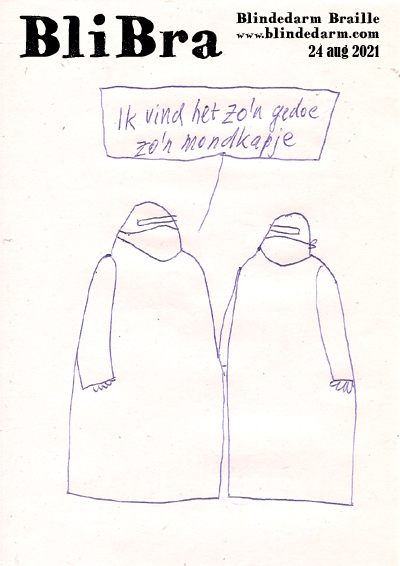 BliBra
Blindedarm Braille
www.blindedarm.com
24 aug 2021
Ik vind het zo'n gedoe
zo'n mondkapje